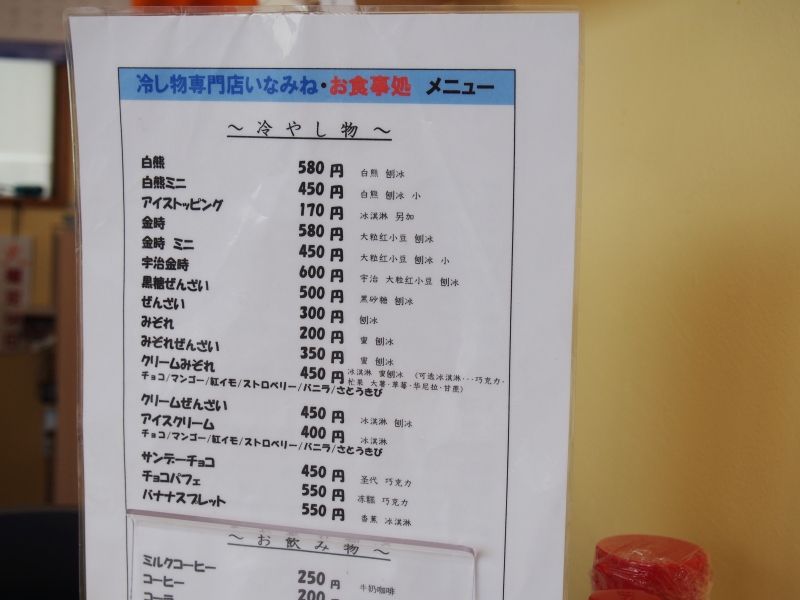 冷し物専門店いなみね・お食事処 メニュー
～ 冷 や し 物 ～
白熊 580 円 白熊 刨冰
白熊ミニ 450 円 白熊 刨冰 小
アイストッピング 170 円 冰淇淋 另加
金時 580 円 大粒红小豆 刨冰
金時 ミニ 450 円 大粒红小豆 刨冰 小
宇治金時 600 円 宇治 大粒红小豆 刨冰
黒糖ぜんざい 500 円 黑砂糖 刨冰
ぜんざい 300 円 刨冰
みぞれ 200 円 蜜 刨冰
みぞれぜんざい 350 円 蜜 刨冰
クリームみぞれ 450 円 冰淇淋 蜜刨冰 （可选冰淇淋···巧克力·
チョコ/マンゴー/紅イモ/ストロベリー/バニラ/さとうきび 芒果 大薯·草莓·华尼拉·甘蔗）
クリームぜんざい 450 円 冰淇淋 刨冰
アイスクリーム 400 円 冰淇淋
チョコ/マンゴー/紅イモ/ストロベリー/バニラ/さとうきび
サンデーチョコ 450 円 圣代 巧克力
チョコパフェ 550 円 冻糕 巧克力
バナナスプレット 550 円 香蕉 冰淇淋
～ お 飲 み 物 ～
ミルクコーヒー 250 円 牛奶咖啡
コーヒー 200 円
コーラ